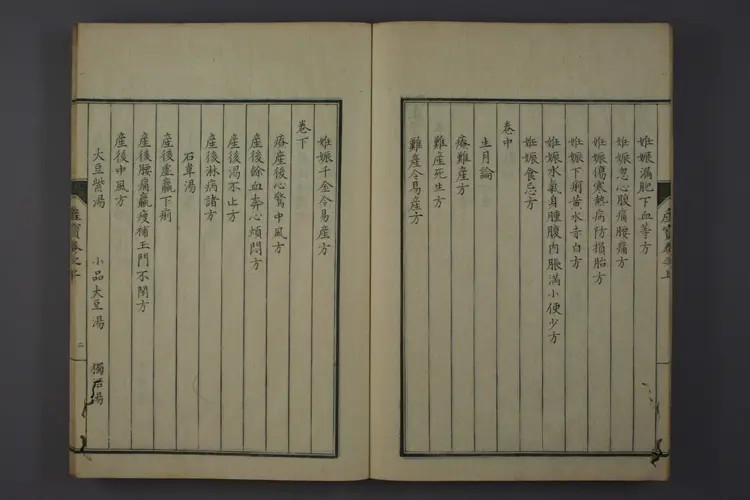 姙娠漏胞下血等方
姙娠忽心腹痛腰痛方
姙娠傷寒熱病防損胎方
姙娠下痢黄水赤白方
姙娠水氣身腫腹内脹滿小便少方
姙娠食忌方
卷中
生月論
療難産方
難産死生方
難産令易産方
姙娠千金令易産方
卷下
療産後心驚中風方
産後餘血奔心煩悶方
産後渴不止方
産後淋病諸方
石韋湯
産後虛羸下痢
産後腰痛羸瘦補玉門不閉方
産後中風方
大豆紫湯 小品大豆湯 獨活湯
二